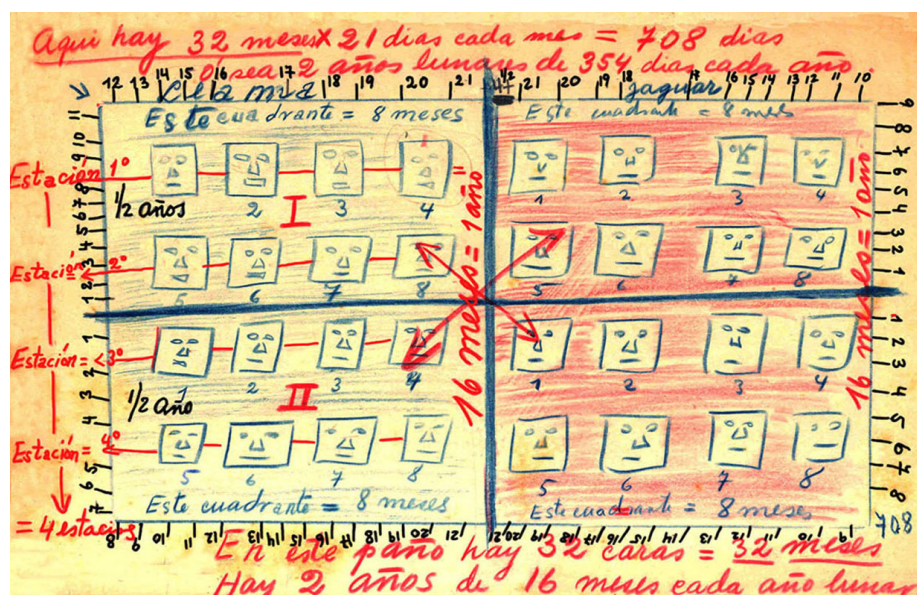 Aqui hay 32 meses x 21 dias cada mes = 708 dias
O sea 2 años lunares de 354 dias cada año.
12 13 14 15 16 17 18 19 20 21 21 20 19 18 17 16 15 14 13 12 11 10
jaguar
Este cuadrante = 8 meses
Este cuadrante = 8 meses
Estación 1º
1/2 años
I
2 3 4
1 2 3 4
Estación 2º
5 6 7 8
5 6 7 8
16 meses = 1 año
16 meses = 1 año
Estación = 3º
1/2 año
II
1 2 3 4
1 2 3 4
Estación = 4º
5 6 7 8
5 6 7 8
= 4 estacions
Este cuadrante = 8 meses
Este cuadrante = 8 meses
708
En este paño hay 32 caras = 32 meses
Hay 2 años de 16 meses cada año lunar